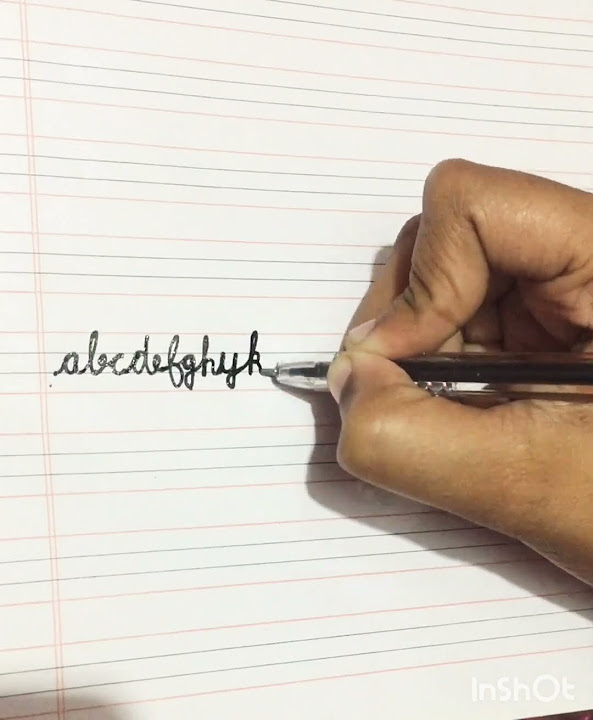 abcdefghijk
InShOt